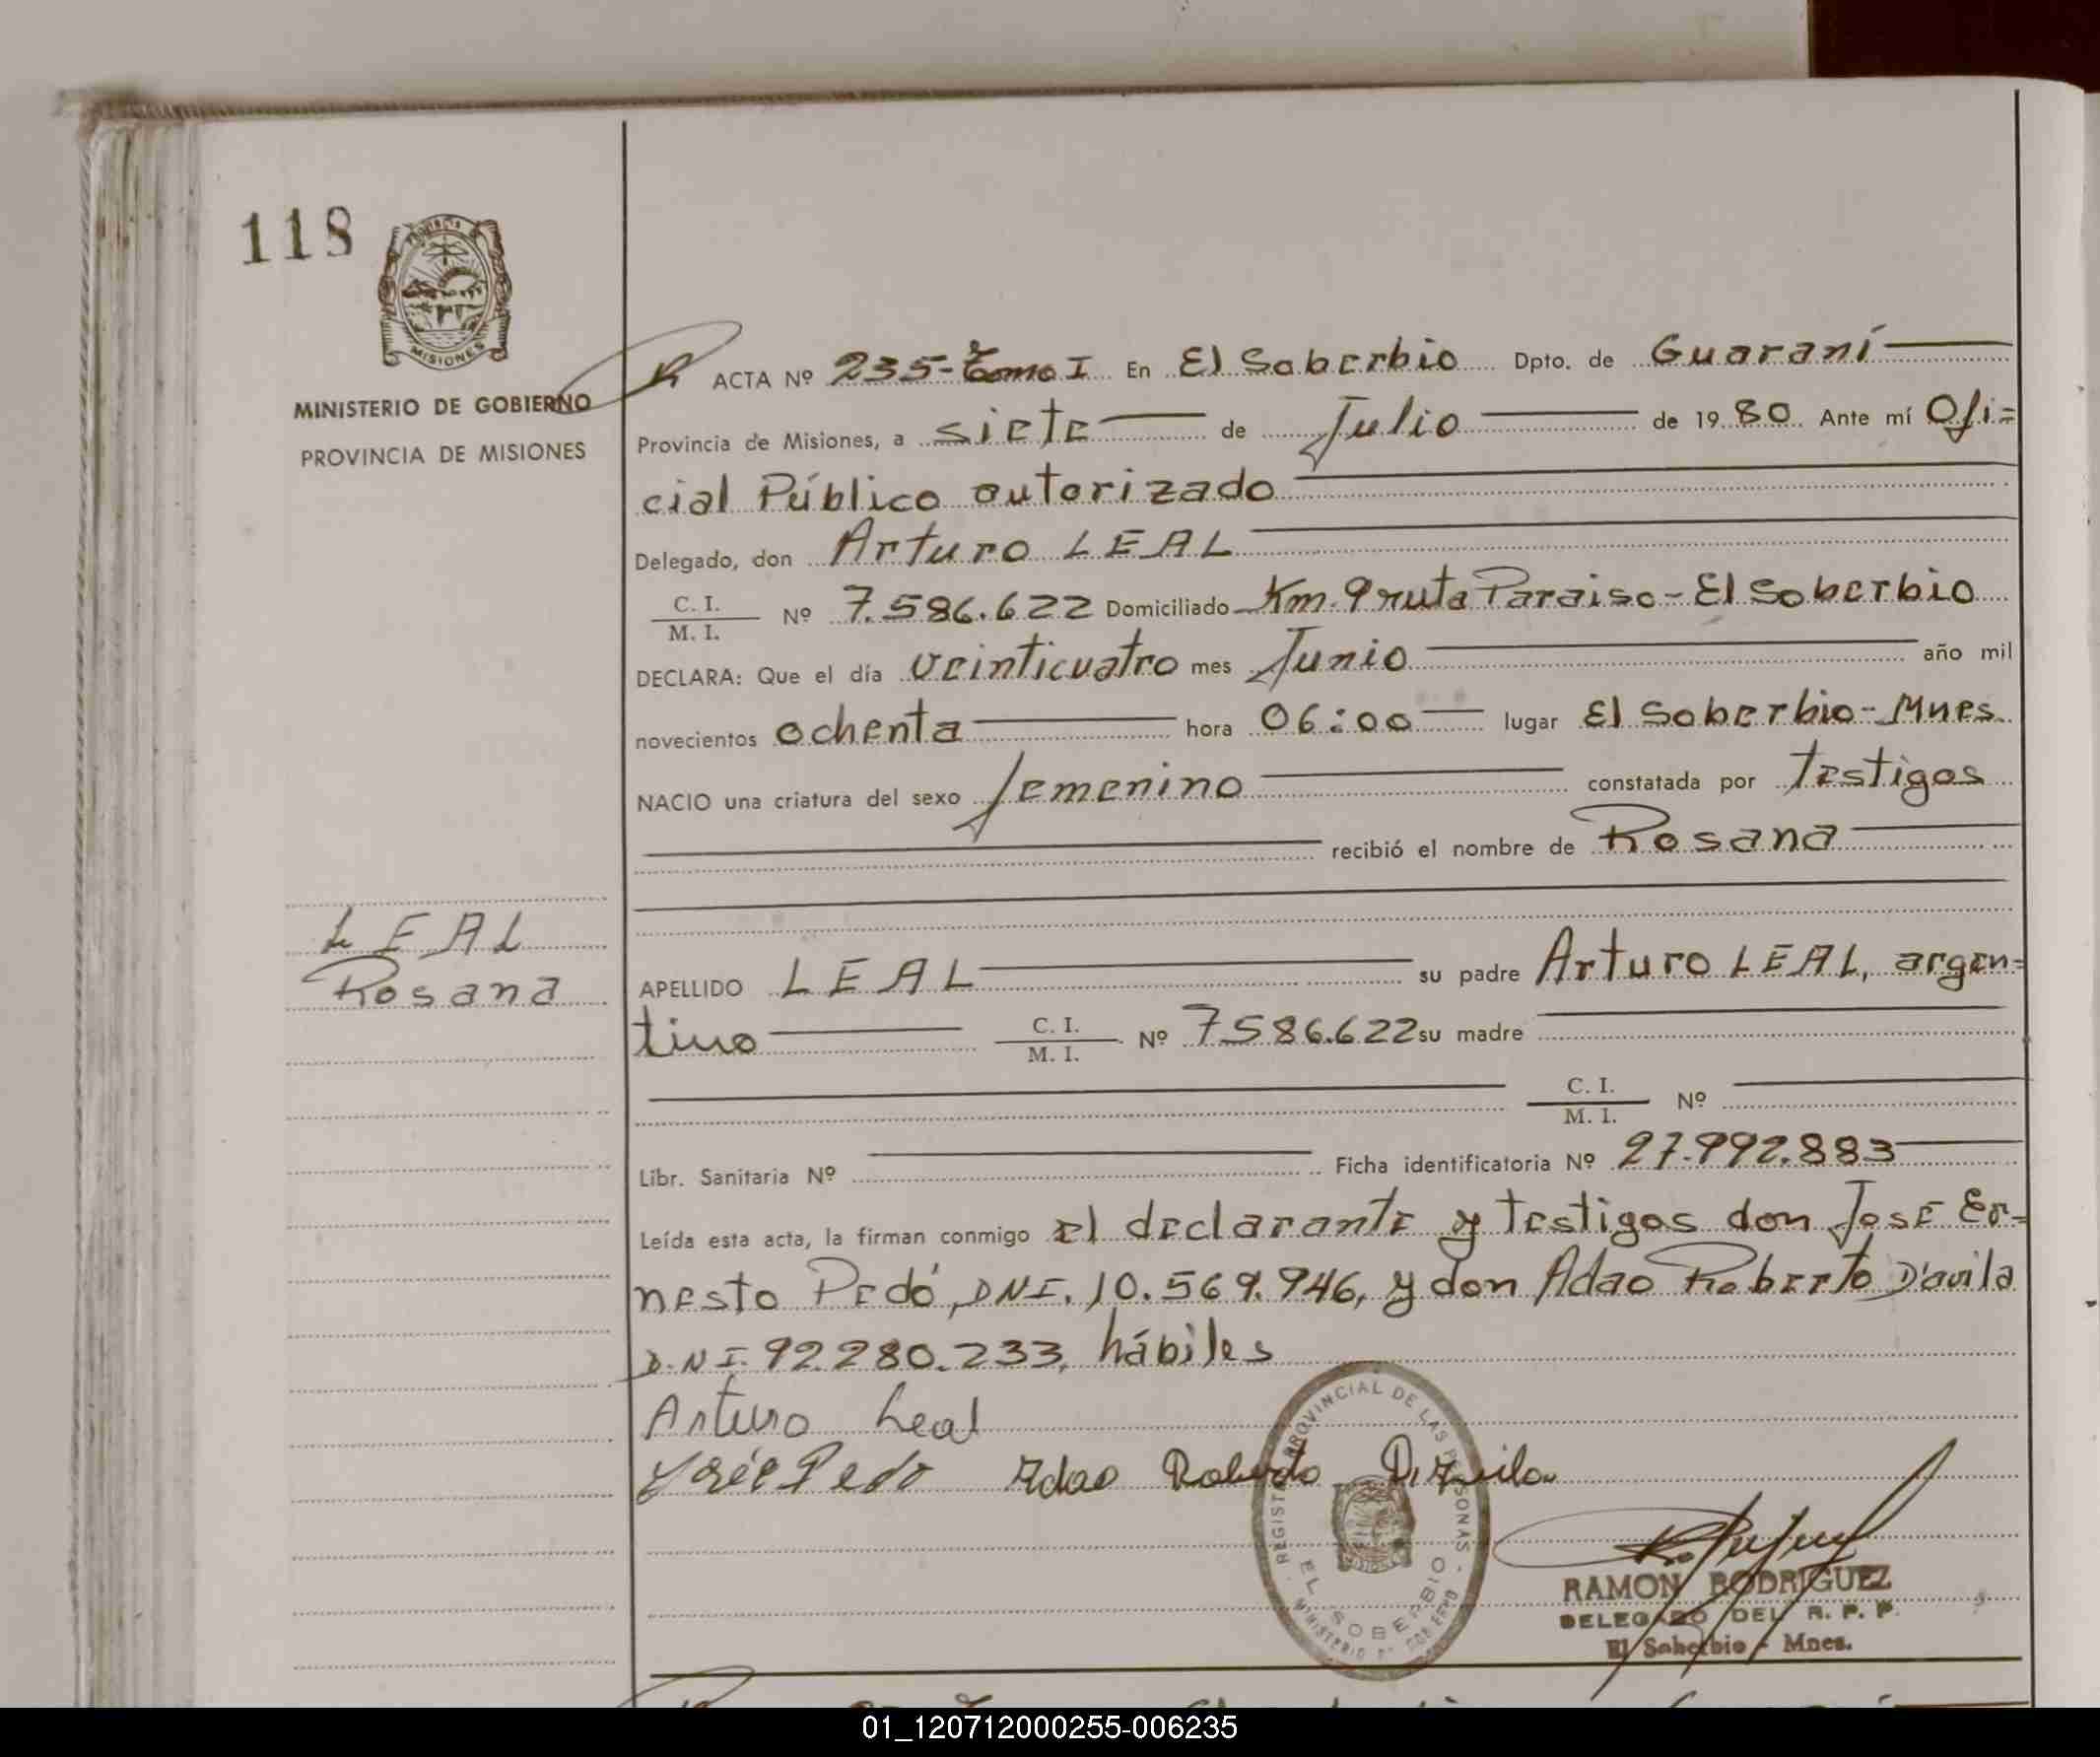 118
PROVINCIA DE
MISIONES
MINISTERIO DE GOBIERNO
PROVINCIA DE MISIONES
ACTA Nº 235-Tomo I En El Soberbio Dpto. de Guaraní
Provincia de Misiones, a siete de Julio de 1980 Ante mí Ofi=
cial Público autorizado
Delegado, don Arturo LEAL
C. I.
M. I. Nº 7.586.622 Domiciliado Km. 9 ruta Paraiso - El Soberbio
DECLARA: Que el día veinticuatro mes Junio año mil
novecientos ochenta hora 06:00 lugar El Soberbio - Mnes.
NACIO una criatura del sexo femenino constatada por Testigos
recibió el nombre de Rosana
LEAL
Rosana
APELLIDO LEAL su padre Arturo LEAL, argen=
tino C. I.
M. I. Nº 7586.622 su madre
C. I.
M. I. Nº
Libr. Sanitaria Nº Ficha identificatoria Nº 27.992.883
Leída esta acta, la firman conmigo el declarante y testigos don José Er=
nesto Pedó, DNI. 10.569.946, y don Adao Roberto D'avila
D.N.I. 92.280.233, hábiles
Arturo Leal
José Pedo Adao Roberto D'Avila
REGISTRO PROVINCIAL DE LAS PERSONAS
EL SOBERBIO
MINISTERIO DE GOBIERNO
RAMON RODRIGUEZ
DELEGADO DEL R. P. P.
El Soberbio - Mnes.
01_120712000255-006235